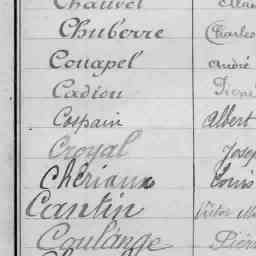 Chauvet
Chuberre Charles
Couapel André
Cadiou René
Cospain Albert
Croyal Josep
Chériaux Louis
Cantin Victor M
Coulange Pierr